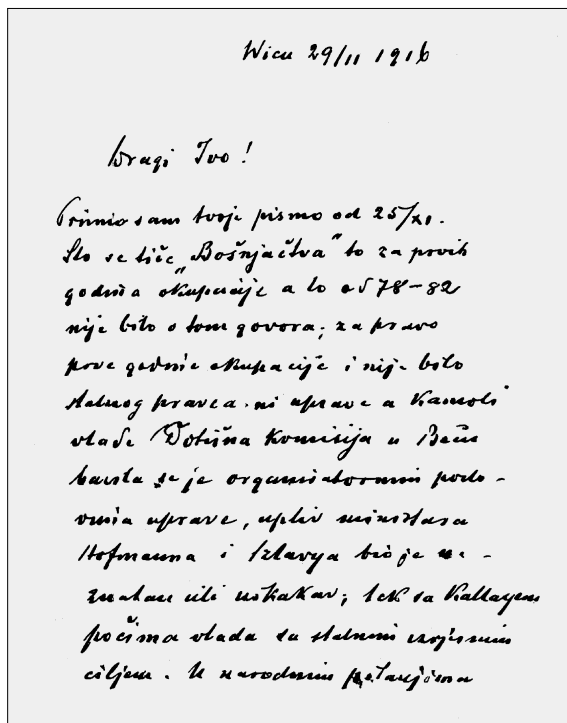 Wien 29/11 1916
Dragi Ivo!
Primio sam tvoje pismo od 25/XI.
Što se tiče „Bošnjačtva" to za prvih
godina okupacije a to od 78-82
nije bilo o tom govora; za pravo
prve godine okupacije i nije bilo
stalnog pravca ni uprave a kamoli
vlade Dotična Komisija u Beču
bavila se je organizatornim poslo-
vima uprave, upliv ministara
Hofmanna i Szlavya bio je ne-
znatan ili nikakav; tek sa Kallayem
počima vlada sa stalnim izvjesnim
ciljem. U narodnim pitanjima